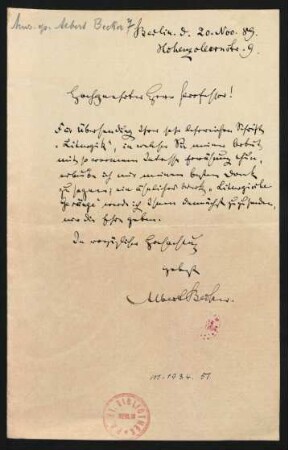 Albert Becker
Berlin. d. 20. Nov. 89.
Hohenzollernstr. 9.
Hochgeehrter Herr Professor!
Für Übersendung Ihrer sehr lehrreichen Schrift
"Liturgik", in welcher Sie meiner Arbeit
mit so warmem Interesse Erwähnung thun,
erlaube ich mir meinen besten Dank
zu sagen; ein ähnliches Werk, "Liturgische
Gesänge" werde ich Ihnen demnächst zuzusenden,
mir die Ehre geben.
In vorzüglicher Hochachtung
Albert Becker.
M. 1934. 51